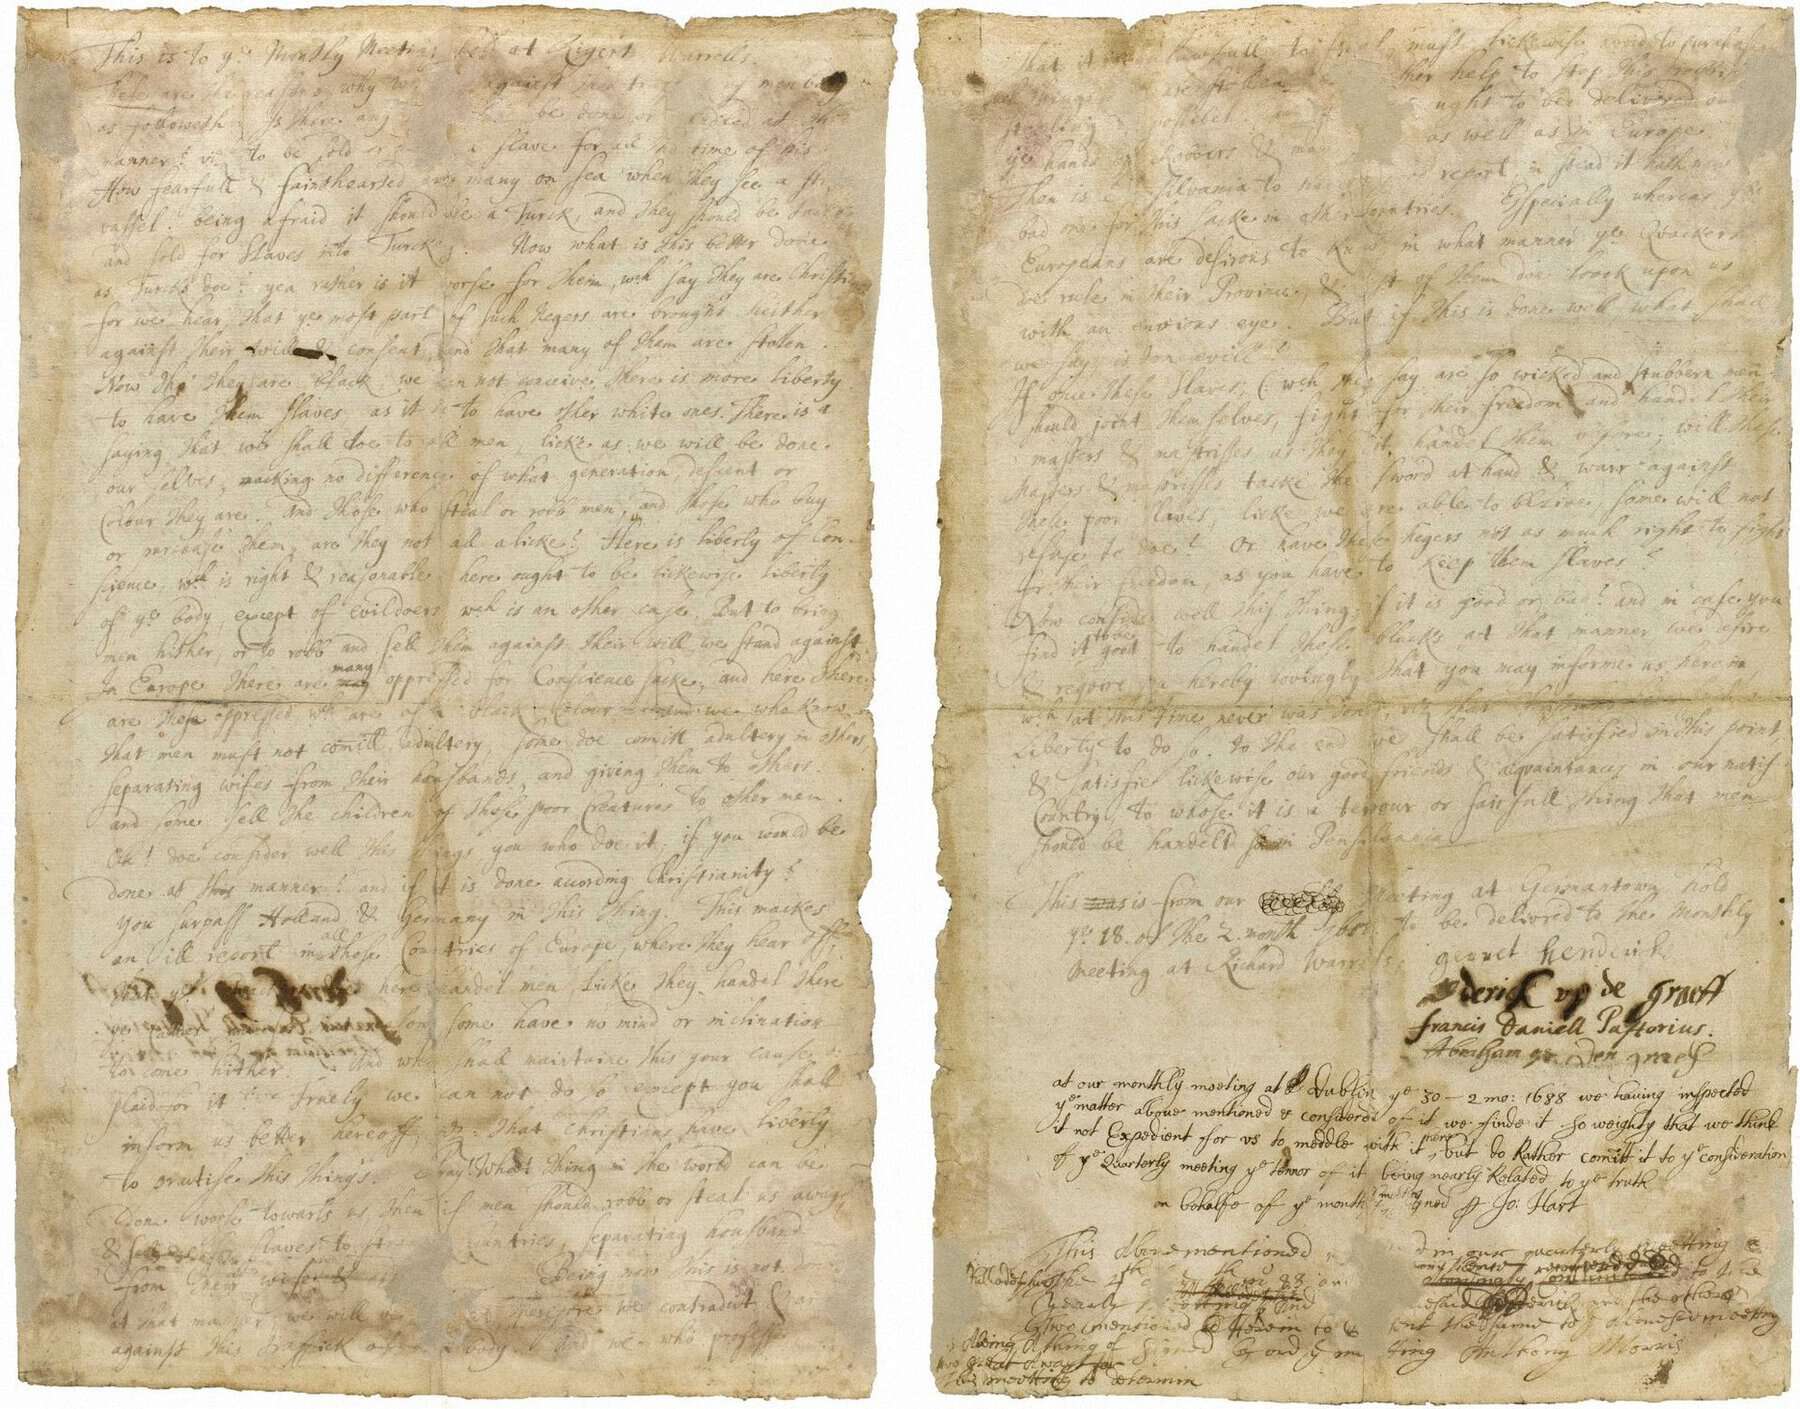 This is to ye Monthly Meeting held at Rigert Worrells.
These are the reasons why we against the of men body
as followeth: Is there any be done or at this
manner? viz to be sold or slave for all the time of his
How fearfull & fainthearted are many on sea when they see a
vassel. being afraid it should be a Turck, and they should be
and sold for Slaves into Turckey. Now what is this better done
as Turcks doe? yea rather is it worse for them, wch say they are Christi
for we hear, that ye most part of such Negers are brought heither
against their will & consent, and that many of them are stolen.
Now tho they are black, we can not conceive there is more liberty
to have them slaves, as it is to have other white ones. There is a
saying, that we shall doe to all men, licke as we will be done
our selves; macking no difference of what generation, descent or
Colour they are. and those who steal or robb men, and those who buy
or purchase them, are they not all alicke? Here is liberty of Con-
science, wch is right & reasonable, here ought to be lickewise liberty
of ye body, except of evildoers wch is an other case. But to bring
men hither, or to robb and sell them against their will, we stand against.
In Europe there are many oppressed for Conscience sacke; and here there
are those oppressed wch are of a black Colour. and we who know
that men must not comitt adultery, some doe comitt adultery in others,
separating wifes from their housbands, and giving them to others.
and some sell the children of those poor Creatures to other men.
Oh! doe consider well this things you who doe it, if you would be
done at this manner? and if it is done acording Christianity?
You surpass Holland & Germany in this thing. This mackes
an ill report in all those Countries of Europe, where they hear off,
that ye here handel men, Licke they handel there
for some have no mind or inclination
to come hither. And who shall maintaine this your cause or
plaid for it? Truely we can not do so except you shall
inform us better hereoff, viz: that christians have liberty
to practise this things. Pray! What thing in the world can be
done worse towarts us then if men should robb or steal us away
& sell slaves to Countries, separating housband
from their wife & Being now this is not
at that manner, we will therefore we contradict &
against this traffick of body. And we who profess
that it lawfull to steal, must lickewise avoid to purchase
such things ther help to stop this
stealing possibel ought to be delivered
ye hands of Robbers & as well as in Europe.
Then is silvania to report, in stead it hath now
bad one for this sacke in other Countries. Especially whereas ye
Europeans are desirous to know in what manner ye Quackers
doe rule in their Province, & of them doe loock upon us
with an envious eye. But if this is done well, what shall
we say, is done evill?
If once these slaves, (wch they say are so wicked and stubbern men)
should joint themselves, fight for their freedom and handel their
masters & mastrisses as they did handel them before; will these
Masters & mastrisses tacke the sword at hand & warr against
these poor slaves, licke we are able to belive, some will not
refuse to doe? Or have these Negers not as much right to fight
for their freedom, as you have to keep them slaves?
Now consider well this thing, if it is good or bad? and in case you
find it to be good to handel these blacks at that manner, we desire
& require you hereby lovingly that you may informe us herein,
wch at this time never was done, viz. that
Liberty to do so. to the end we shall be satisfied in this point,
& satisfie lickewise our good friends & acquaintances in our natif
Country, to whose it is a terrour or fairfull thing that men
should be handeld so in Pensilvania
This was is from our Meeting at Germantown hold
ye 18. of the 2. month 1688. to be delivred to the Monthly
Meeting at Richard Warrels.
gerret hendericks
derick op de graeff
Francis Daniell Pastorius.
Abraham op Den graeff
at our monthly meeting at Dublin ye 30 – 2 mo: 1688 we having inspected
ye matter above mentioned & considered of it we finde it so weighty that we think
it not Expedient for us to meddle with it here, but do Rather comitt it to ye consideration
of ye Quarterly meeting ye tennor of it being nearly Related to ye truth
on behalfe of ye monthly meeting signed P Jo: Hart
This Above mentioned in our quarterly meeting
held at the 4th of 88
yearly meeting and and the other
two mentioned therein to the same to ye abovesd meeting
it being A thing of signed by ordr of ye meeting Anthony Morris
too Great A waight for
this meeting to determin